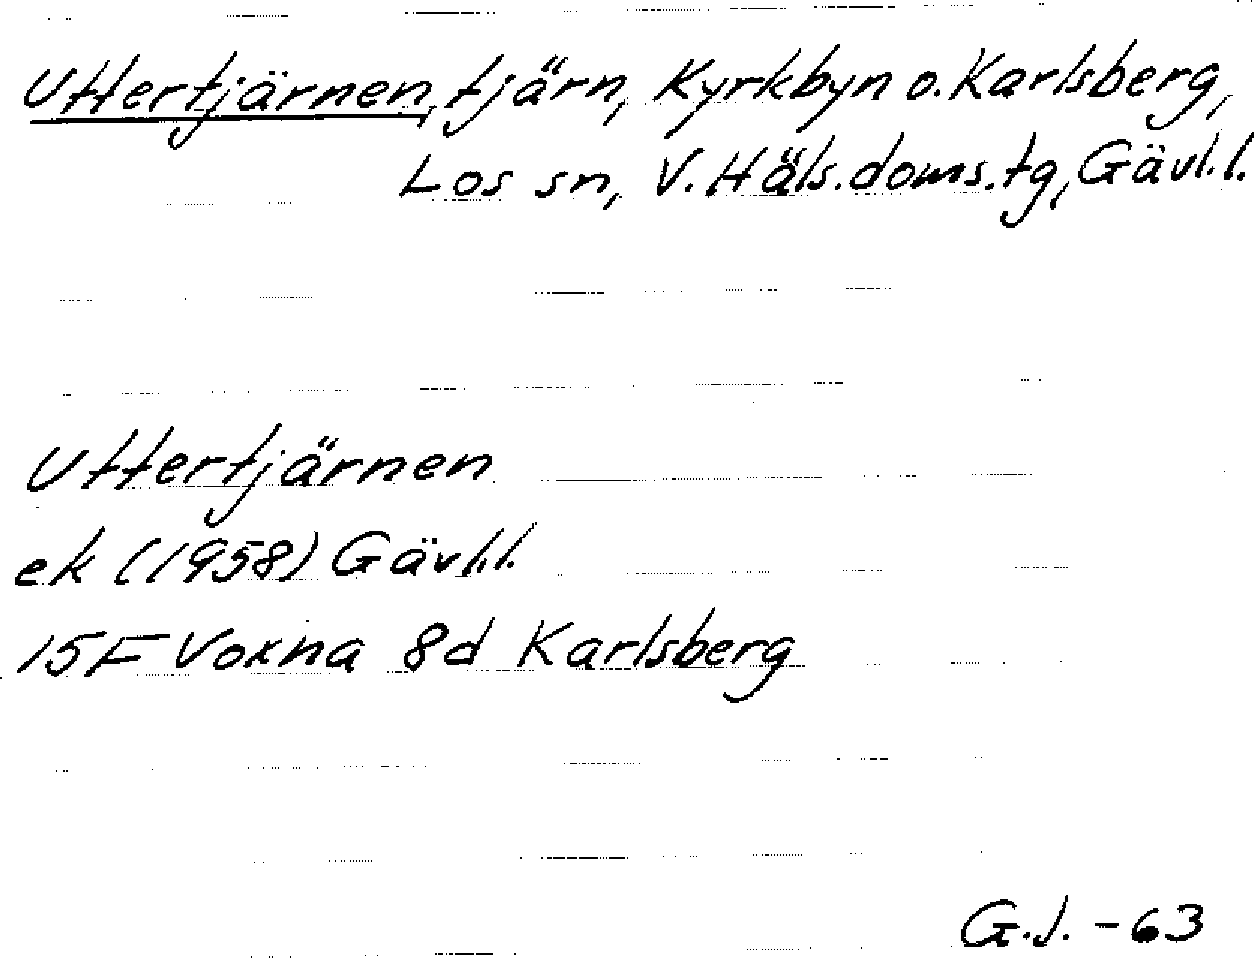 Uttertjärnen, tjärn, Kyrkbyn o. Karlsberg,
Los sn, V. Häls. doms. tg, Gävl.l.
Uttertjärnen
ek (1958) Gävl.l.
15F Voxna 8d Karlsberg
G.J. -63